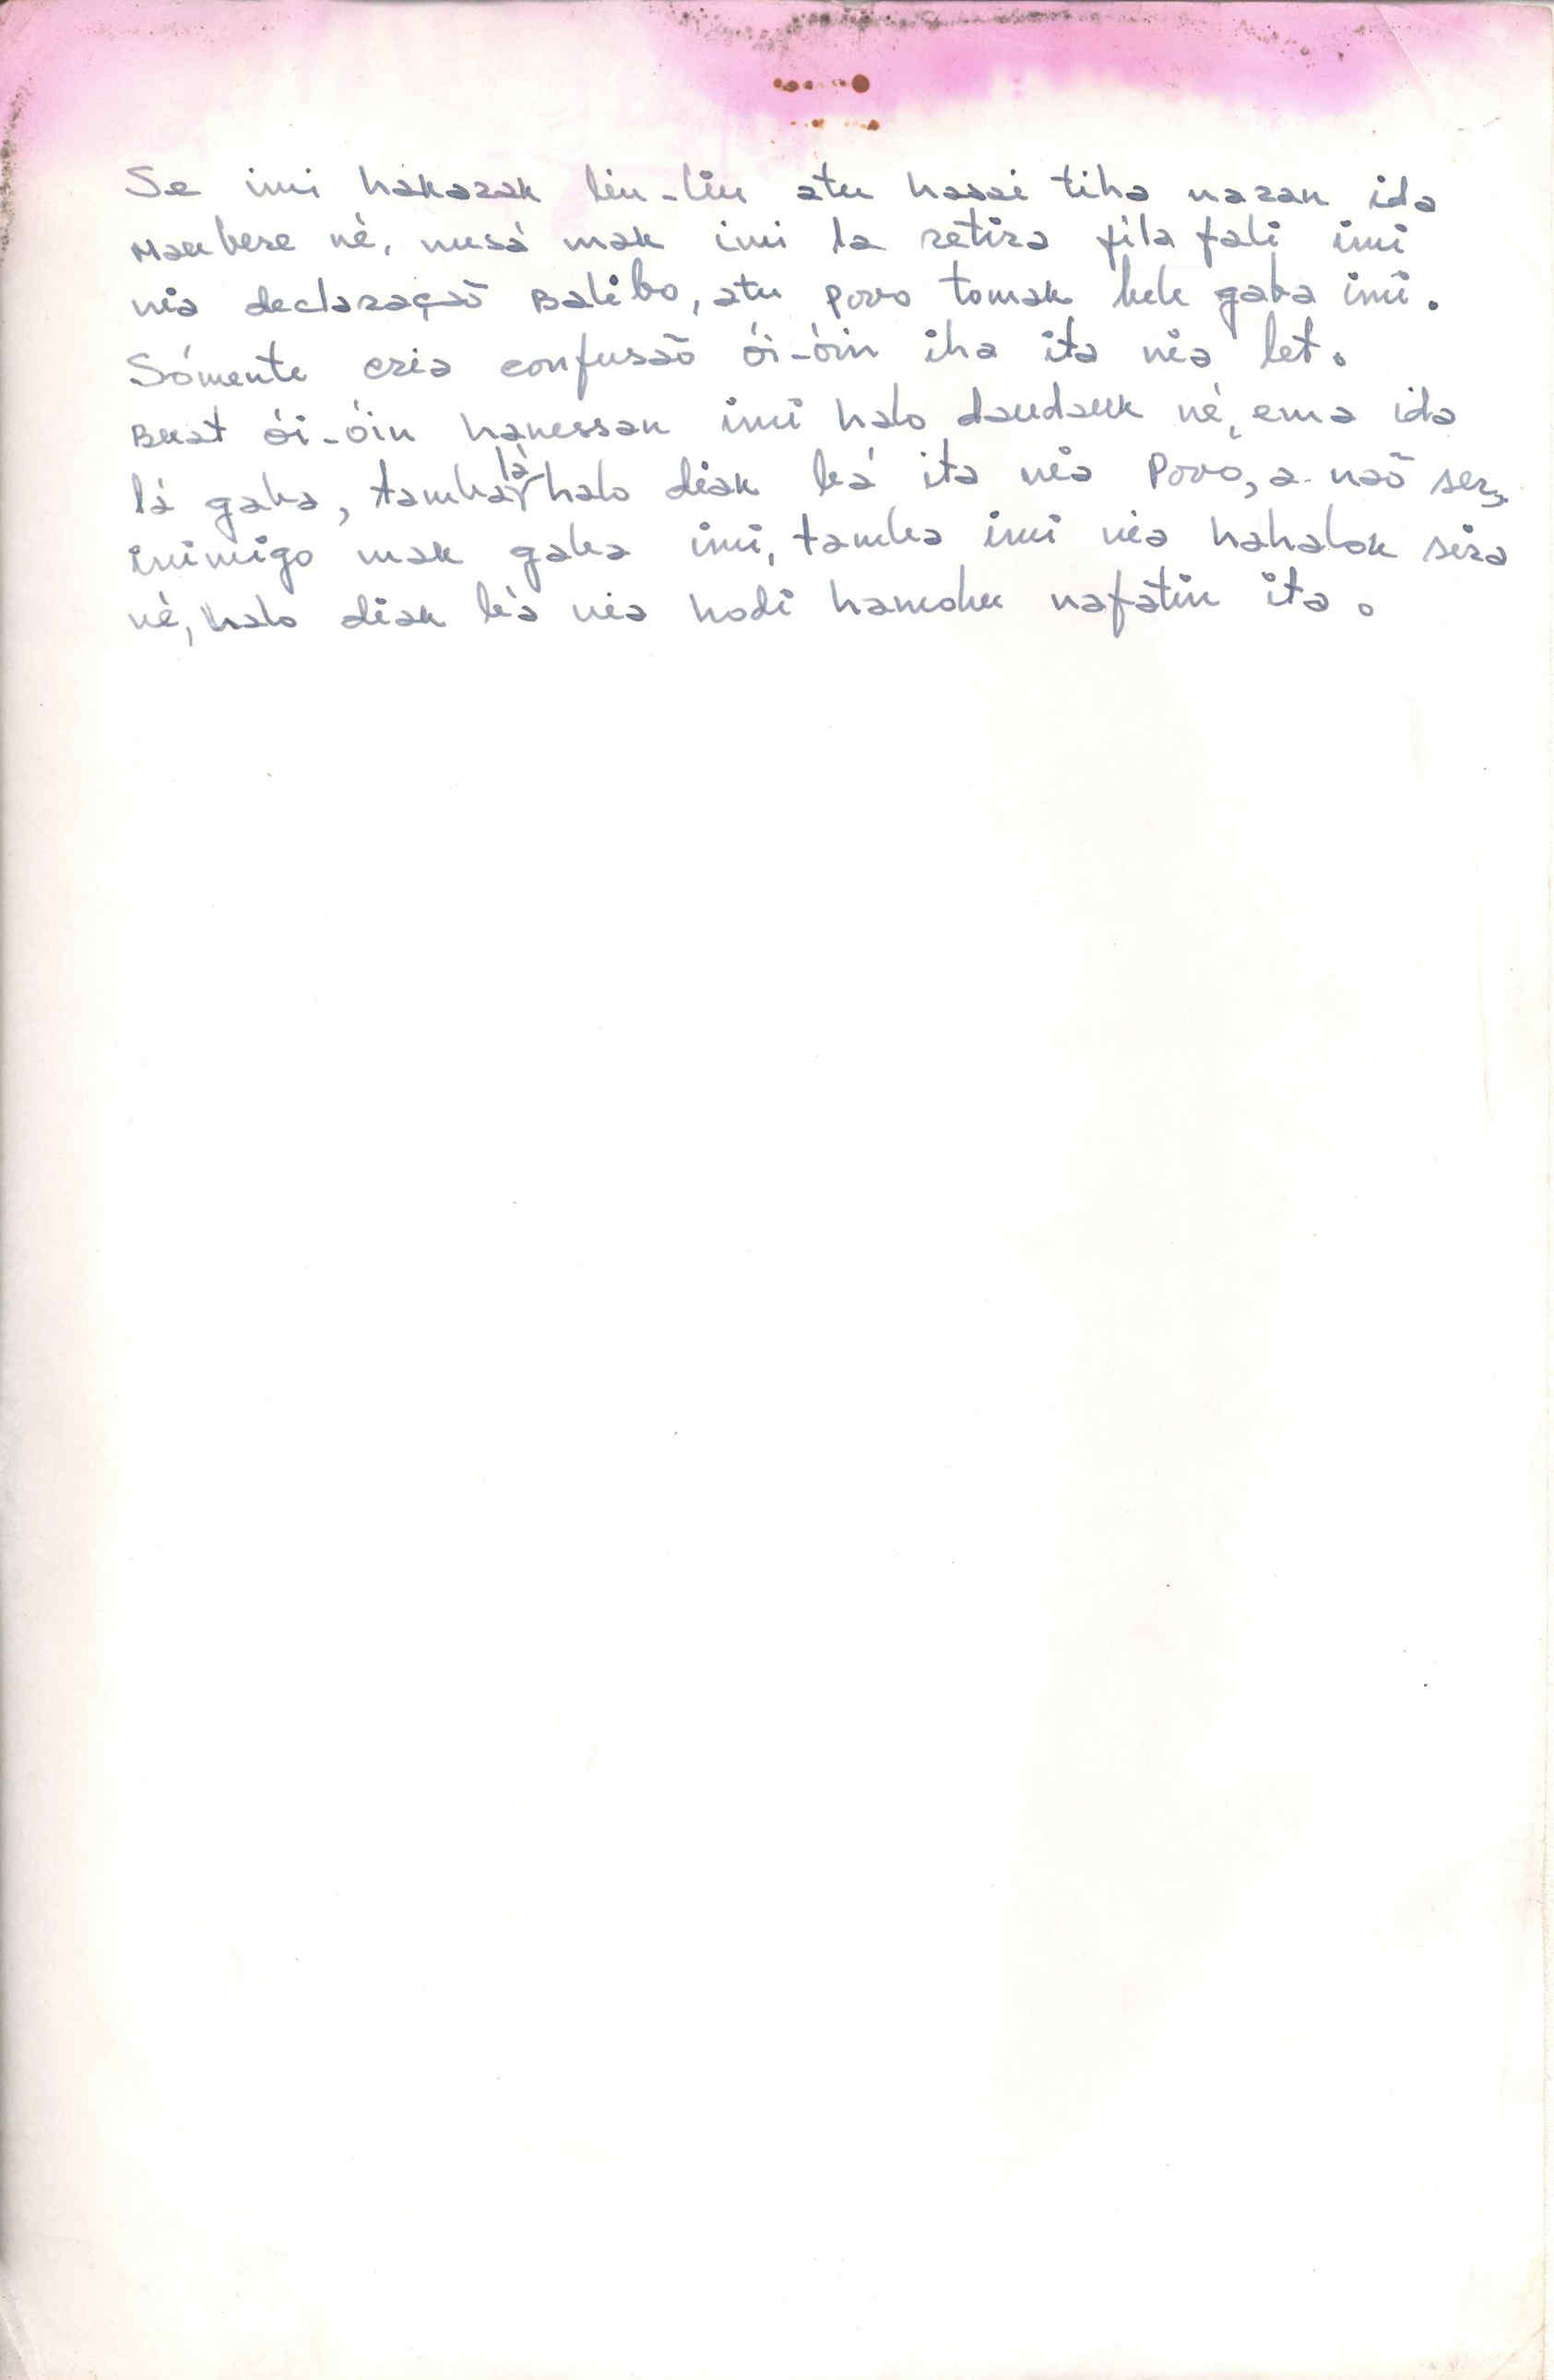 Se imi hakarak liu-liu atu hasai tiha naran ida
Maubere nè, nusá mak imi la retira fila fali imi
nia declaraçaõ Balibo, atu povo tomak bele gaba imi.
Sómente cria confusaõ ói-óin iha ita nia let.
Buat ói-óin hanessan imi halo daudauk né, ema ida
lá gaba, tamba lá halo diak bá ita nia Povo, a naõ ser,
inimigo mak gaba imi, tamba imi nia hahalok sira
né, halo diak bá nia hodi hamohu nafatin ita.